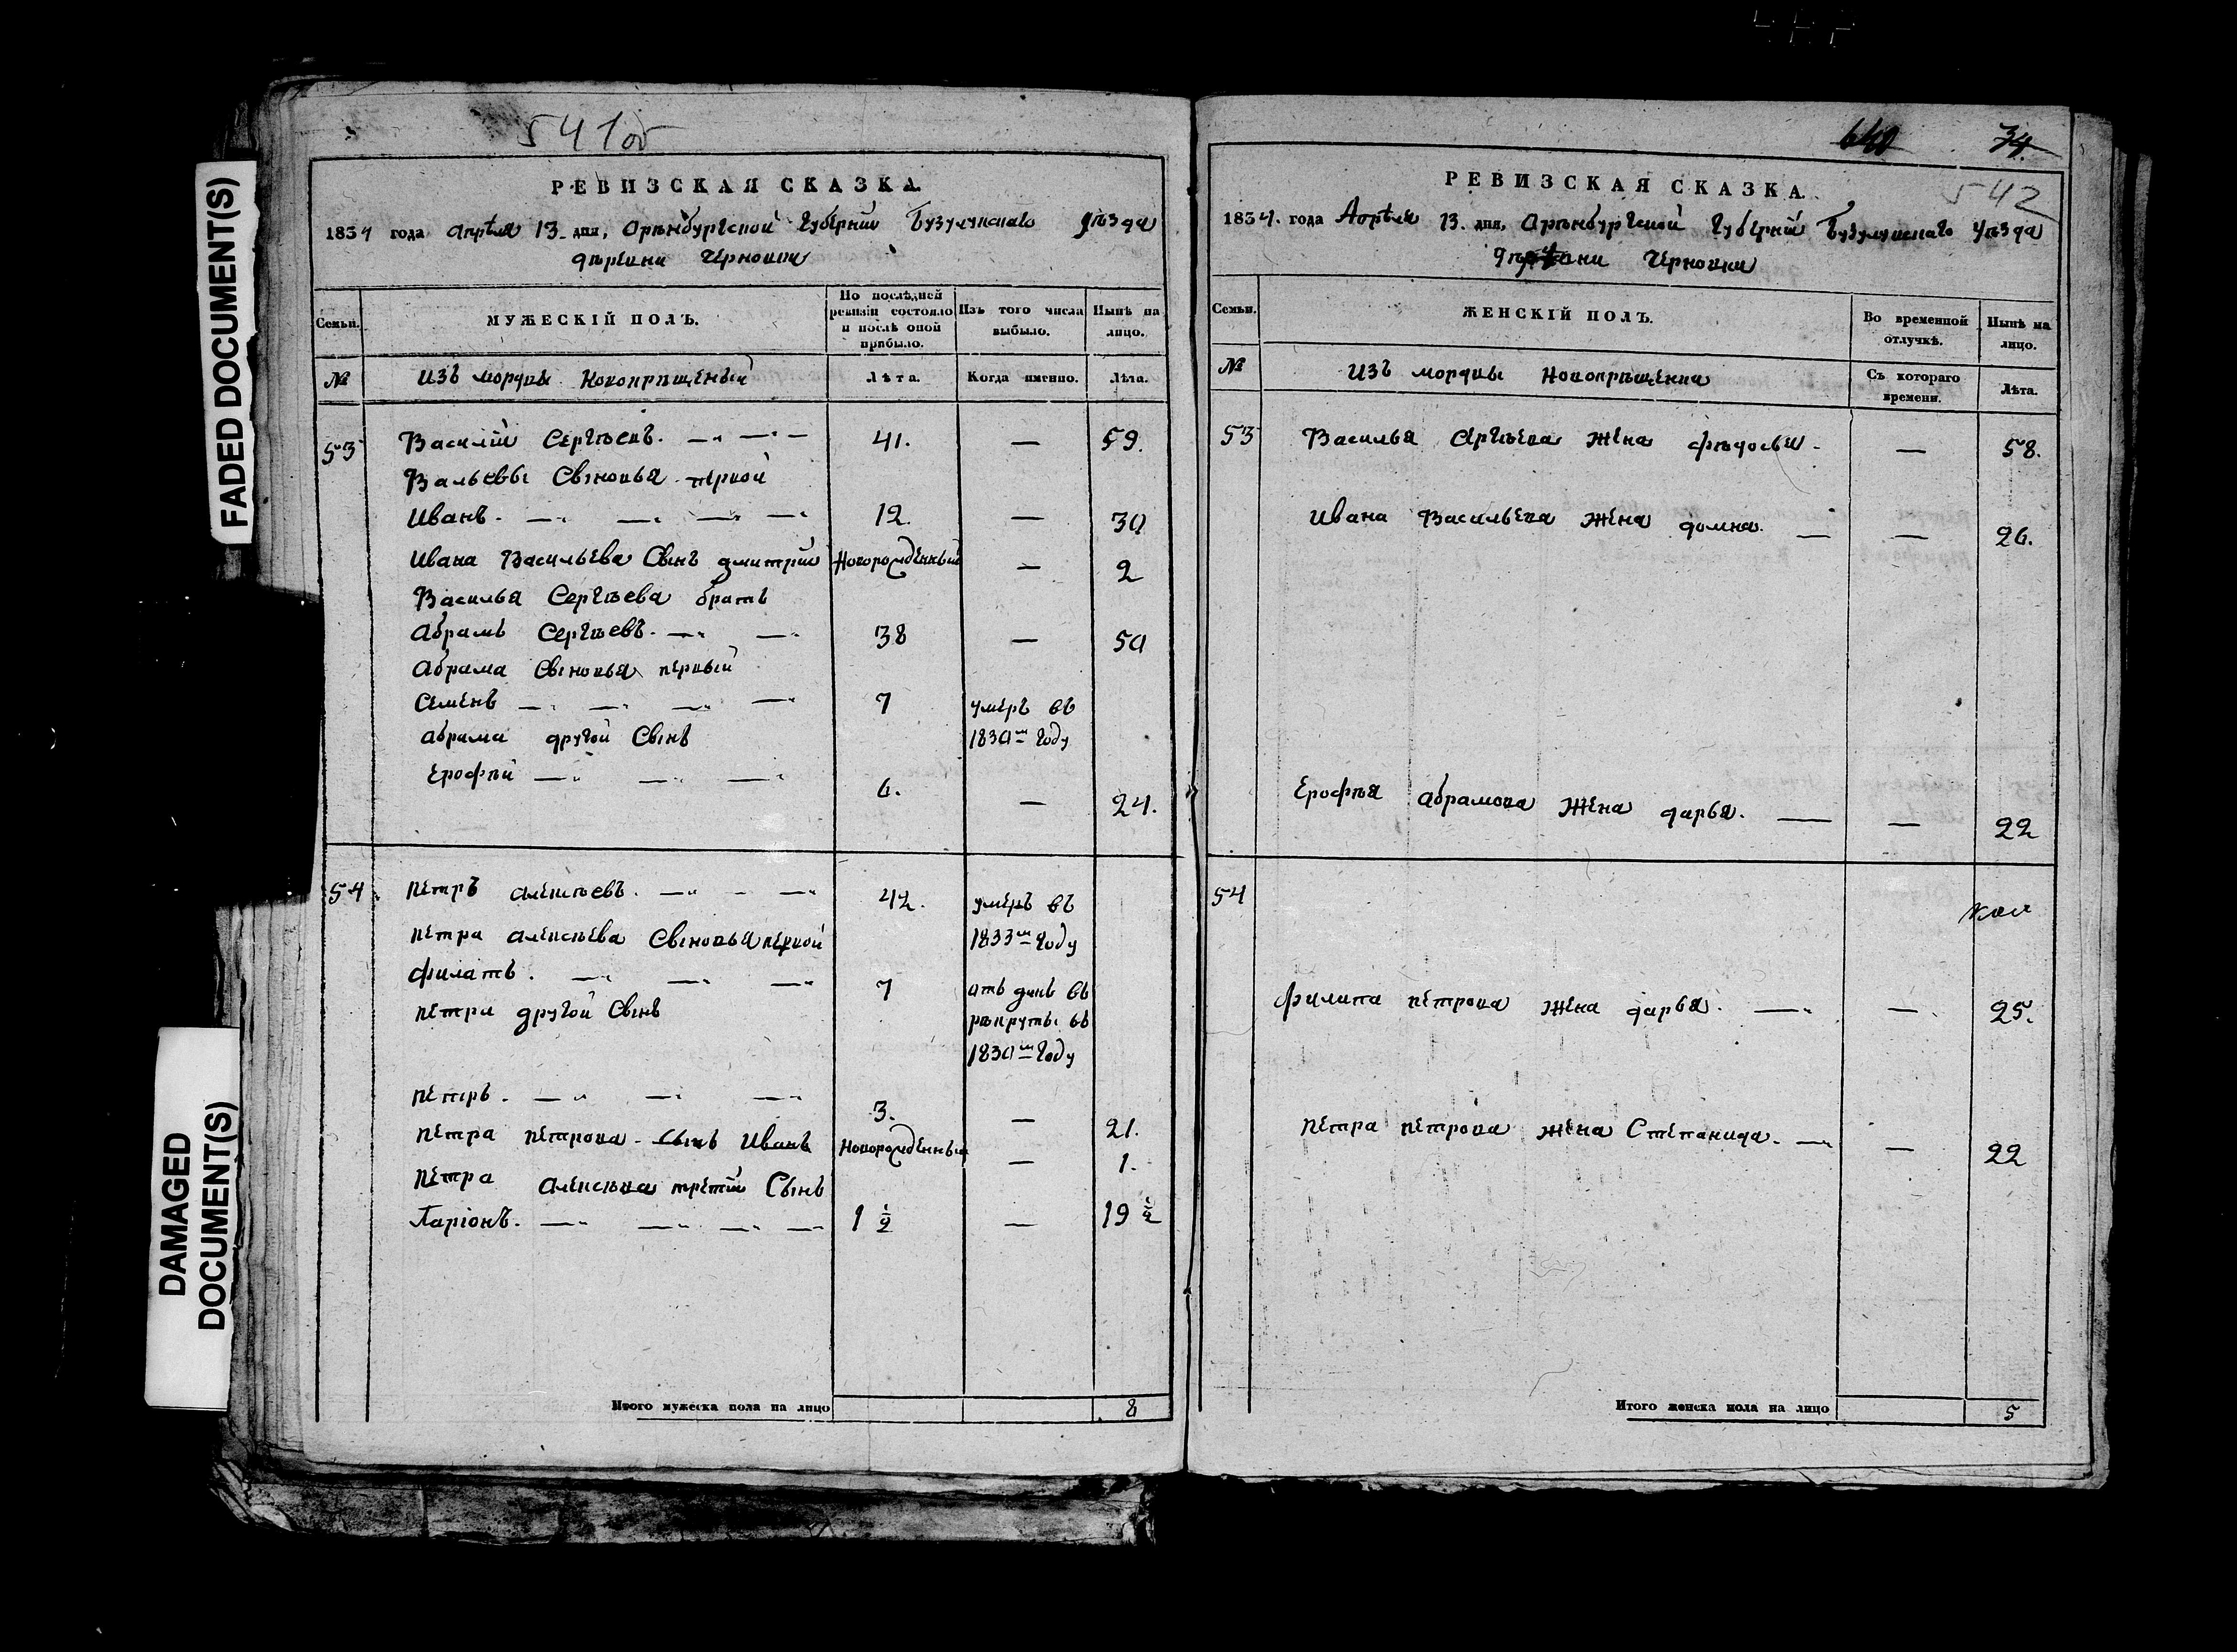 FADED DOCUMENT(S)
DAMAGED DOCUMENT(S)
541об
РЕВИЗСКАЯ СКАЗКА.
1834 года апреля 13 дня, Оренбургской Губернии Бузулукскаго уѣзда
деревни Черновки
Семьи. МУЖЕСКІЙ ПОЛЪ. По послѣдней ревизіи состояло и послѣ оной прибыло. Изъ того числа выбыло. Нынѣ на лицо.
№ Изъ мордвы Новокрещеный Лѣта. Когда именно. Лѣта.
53 Василій Сергѣевъ. 41. — 59.
Вальевы Сыновья первой
Иванъ. 12. — 30
Ивана Васильева Сынъ дмитрій Новорожденный — 2
Василья Сергѣева братъ
Абрамъ Сергѣевъ. 38 — 50
Абрама Сыновья первый
Семенъ 7 умеръ въ
абрама другой Сынъ 1830м году
Ерофѣй 6. — 24.
54 Петръ алексѣевъ. 42. умеръ въ
Петра алексѣева Сыновья первой 1833м году
филатъ. 7 отъ данъ въ
Петра другой Сынъ рѣкруты въ
1830м году
Петръ. 3. — 21.
Петра Петрова Сынъ Иванъ Новорожденный — 1.
Петра алексѣва третій Сынъ
Ларіонъ. 1 ½ — 19 ½
Итого мужеска пола на лицо 8
640 34.
542
РЕВИЗСКАЯ СКАЗКА
1834. года Апреля 13. дня, Оренбургской Губерній Бузулукскаго уѣзда
Черновки
Семьи. ЖЕНСКІЙ ПОЛЪ. Во временной отлучкѣ. Нынѣ на лицо.
№ Изъ мордвы Новокрѣщенки Съ котораго времени. Лѣта.
53 Василья Сергѣева жена фѣдосья — 58.
Ивана Васильева жена домна. — 26.
Ерофѣя абрамова жена дарья. — 22
54
филипа петрова жена дарья. — 25.
Петра петрова жена Степанида. — 22
Итого женска пола на лицо 5